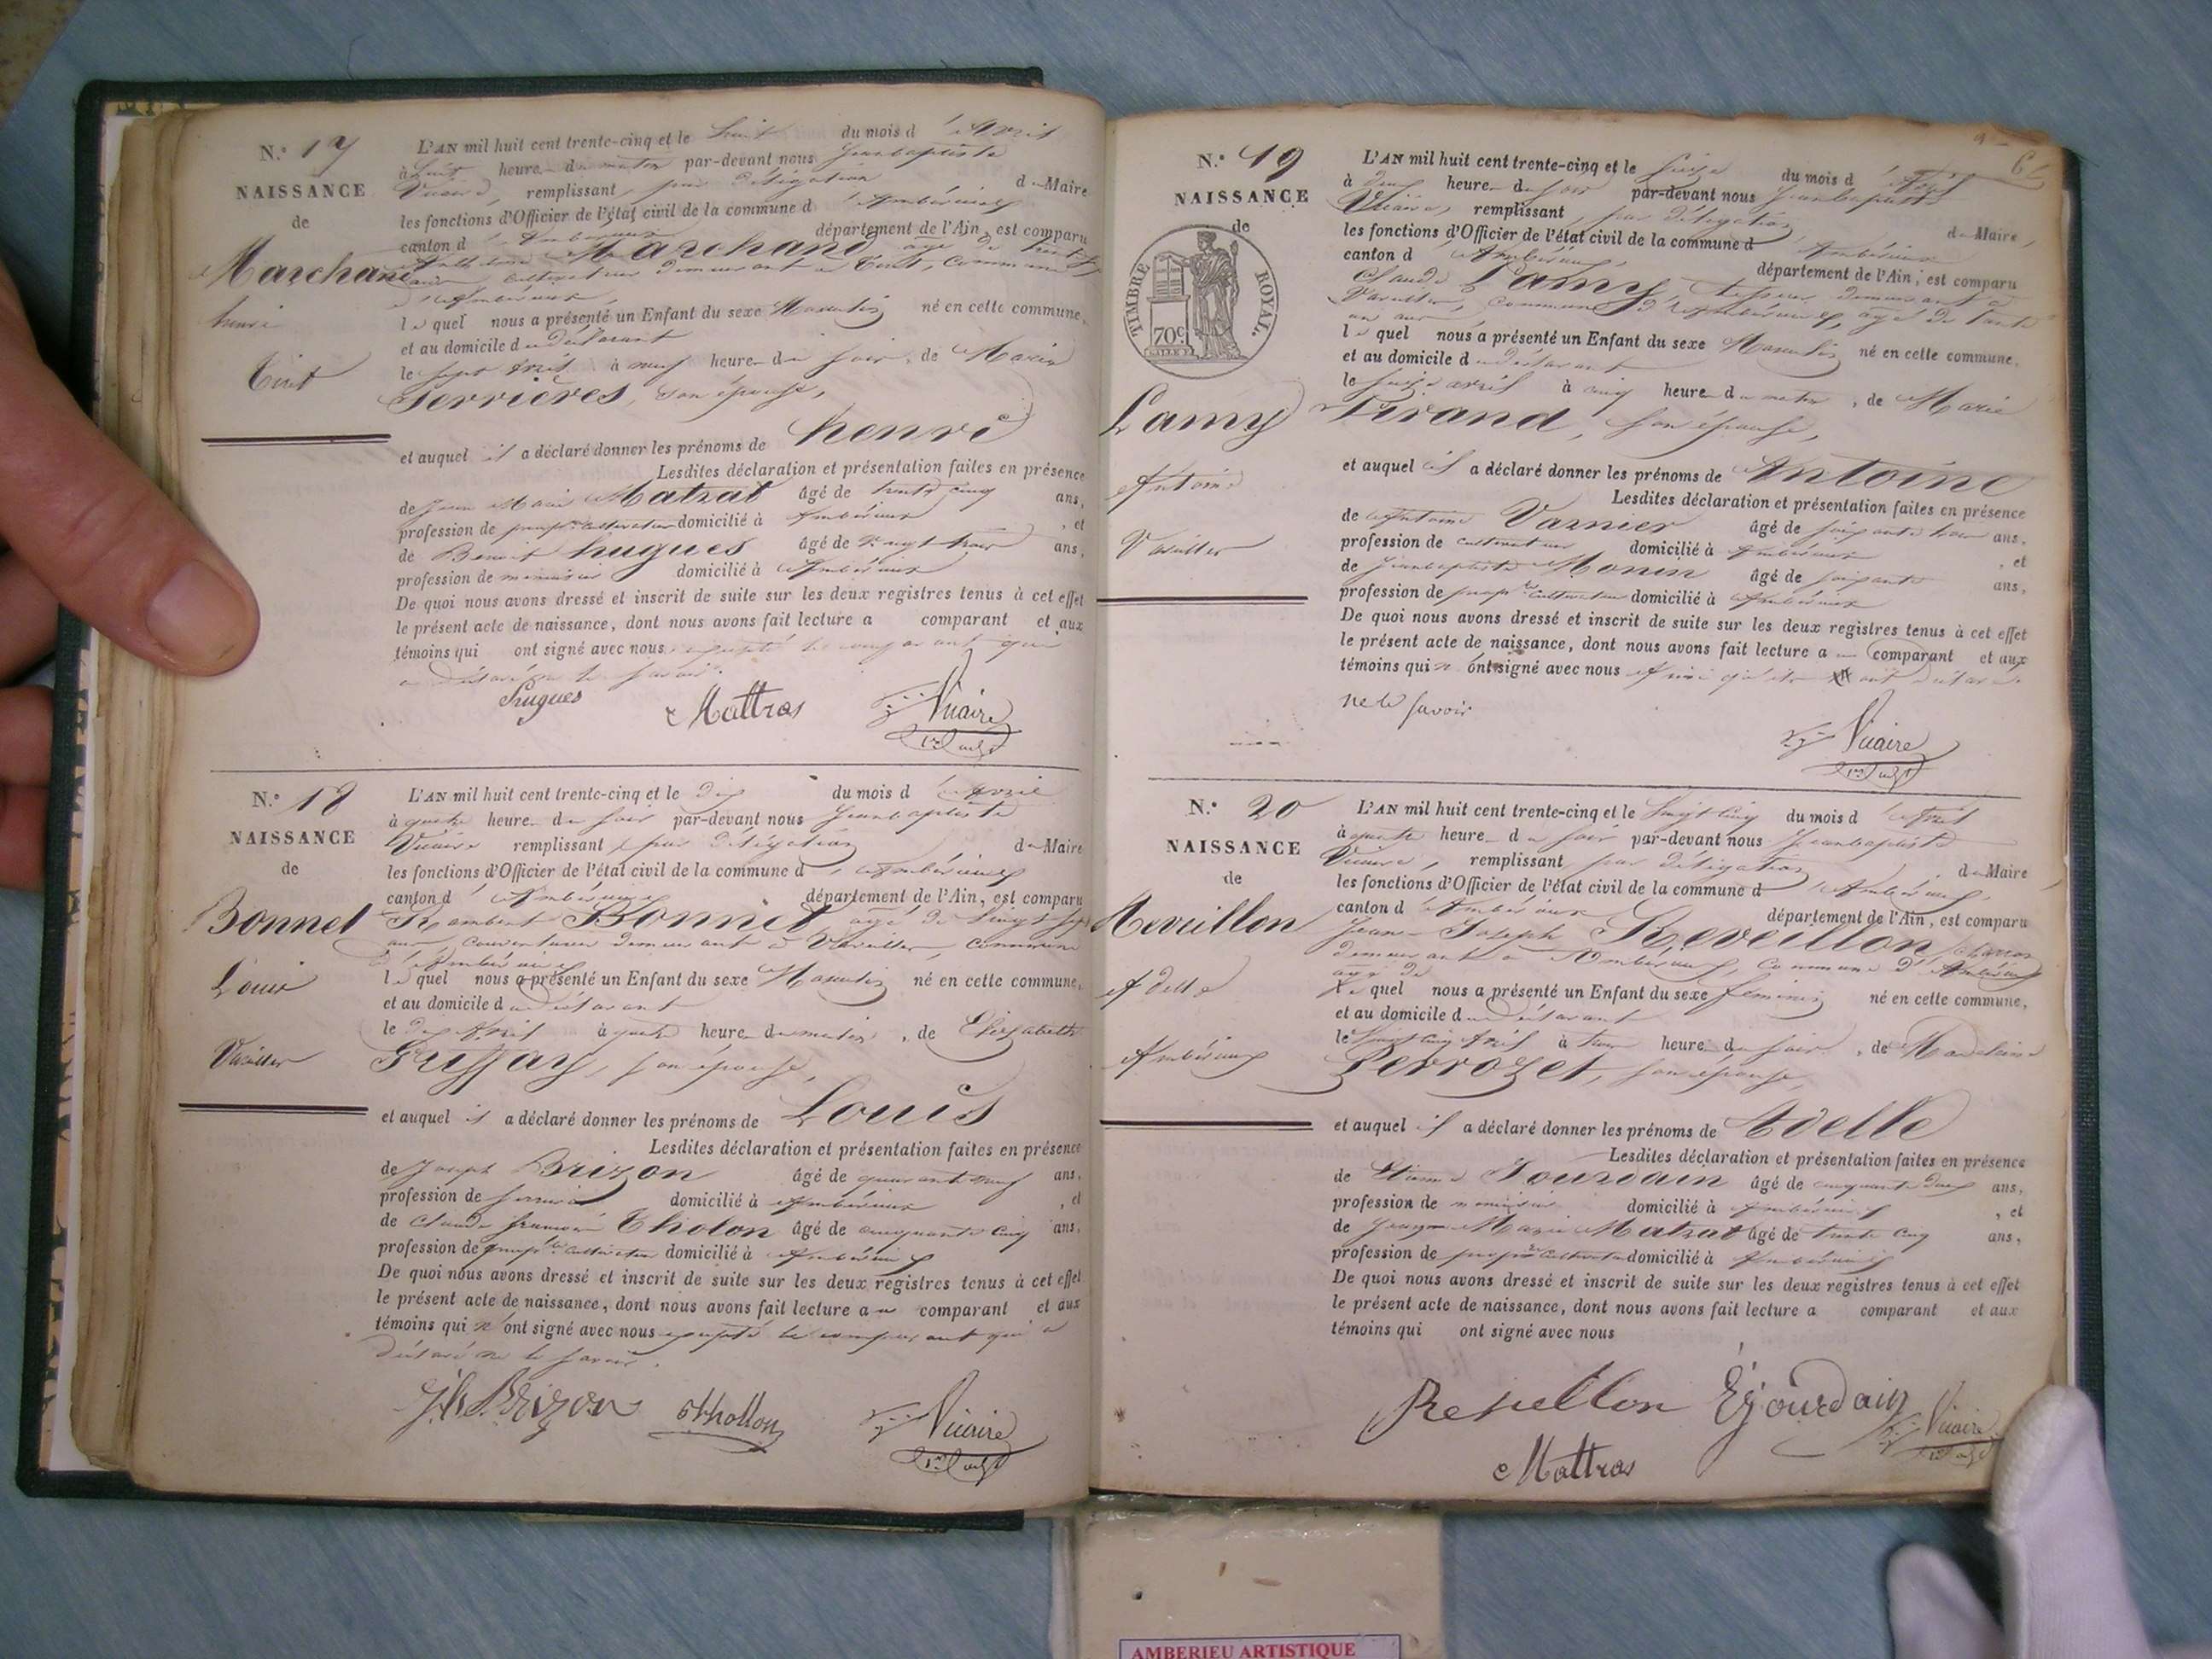 N.° 17
NAISSANCE
de
Marchand
henri
Tiret
L'AN mil huit cent trente-cinq et le huit du mois d'Avril
à huit heure du matin par-devant nous Jeanbaptiste
Vicaire, remplissant par délégation d Maire
les fonctions d'Officier de l'état civil de la commune d'Ambérieux
canton d'Ambérieux département de l'Ain, est comparu
Marchand agé de trente
ans, cultivateur demeurant à Tiret, commune
d'Ambérieux,
lequel nous a présenté un Enfant du sexe Masculin né en cette commune,
et au domicile du déclarant
le sept avril à neuf heure du soir, de Marie
Ferrières, son épouse,
et auquel il a déclaré donner les prénoms de henri
Lesdites déclaration et présentation faites en présence
de Jean Marie Matrat âgé de trente cinq ans,
profession de prop.re cultivateur domicilié à Ambérieux, et
de Benoit hugues âgé de vingt trois ans,
profession de menuisier domicilié à Ambérieux
De quoi nous avons dressé et inscrit de suite sur les deux registres tenus à cet effet
le présent acte de naissance, dont nous avons fait lecture a comparant et aux
témoins qui ont signé avec nous excepté le comparant qui
a déclaré ne le savoir.
hugues Mattras Vicaire
N.° 18
NAISSANCE
de
Bonnet
Louis
Vareilles
L'AN mil huit cent trente-cinq et le dix du mois d'avril
à quatre heure du soir par-devant nous Jeanbaptiste
Vicaire remplissant par délégation d Maire
les fonctions d'Officier de l'état civil de la commune d'Ambérieux
canton d'Ambérieux département de l'Ain, est comparu
Rambert Bonnet agé de vingt sept
ans, demeurant à Vareilles, commune
d'Ambérieux
lequel nous a présenté un Enfant du sexe Masculin né en cette commune,
et au domicile du déclarant
le dix Avril à quatre heure du matin, de Elizabeth
Griffay, son épouse,
et auquel il a déclaré donner les prénoms de Louis
Lesdites déclaration et présentation faites en présence
de Joseph Brizon âgé de quarante neuf ans,
profession de domicilié à Ambérieux, et
de Claude françois Tholon âgé de cinquante cinq ans,
profession de prop.re cultivateur domicilié à Ambérieux
De quoi nous avons dressé et inscrit de suite sur les deux registres tenus à cet effet
le présent acte de naissance, dont nous avons fait lecture au comparant et aux
témoins qui ont signé avec nous excepté le comparant qui a
déclaré ne le savoir.
Brizon Thollon Vicaire
N.° 19
NAISSANCE
de
TIMBRE ROYAL.
70c
Lamy
Antoine
Vareilles
L'AN mil huit cent trente-cinq et le seize du mois d'Avril
à deux heure du soir par-devant nous Jeanbaptiste
Vicaire, remplissant par délégation d Maire,
les fonctions d'Officier de l'état civil de la commune d'Ambérieux
canton d'Ambérieux, département de l'Ain, est comparu
Claude Lamy, demeurant à
Vareilles, commune d'Ambérieux, agé de trente
un ans
lequel nous a présenté un Enfant du sexe Masculin né en cette commune,
et au domicile du déclarant
le seize avril à cinq heure du matin, de Marie
Tirand, son épouse,
et auquel il a déclaré donner les prénoms de Antoine
Lesdites déclaration et présentation faites en présence
de Antoine Varnier âgé de soixante trois ans,
profession de cultivateur domicilié à Ambérieux, et
de Jeanbaptiste Monin âgé de soixante ans,
profession de prop.re cultivateur domicilié à Ambérieux
De quoi nous avons dressé et inscrit de suite sur les deux registres tenus à cet effet
le présent acte de naissance, dont nous avons fait lecture au comparant et aux
témoins qui n'ont signé avec nous ainsi qu'ils ont déclaré
ne le savoir
Vicaire
N.° 20
NAISSANCE
de
Reveillon
Adelle
Ambérieux
L'AN mil huit cent trente-cinq et le vingt cinq du mois d'Avril
à quatre heure du soir par-devant nous Jeanbaptiste
Vicaire, remplissant par délégation d Maire,
les fonctions d'Officier de l'état civil de la commune d'Ambérieux,
canton d'Ambérieux département de l'Ain, est comparu
Jean-Joseph Reveillon, charron
demeurant à Ambérieux, commune d'Ambérieux
agé de
lequel nous a présenté un Enfant du sexe féminin né en cette commune,
et au domicile du déclarant
le vingt cinq Avril à heure du soir, de Madelaine
Perrozet, son épouse,
et auquel il a déclaré donner les prénoms de Adelle
Lesdites déclaration et présentation faites en présence
de Etienne Jourdain âgé de cinquante deux ans,
profession de menuisier domicilié à Ambérieux, et
de Jean Marie Matrat âgé de trente cinq ans,
profession de prop.re cultivateur domicilié à Ambérieux
De quoi nous avons dressé et inscrit de suite sur les deux registres tenus à cet effet
le présent acte de naissance, dont nous avons fait lecture a comparant et aux
témoins qui ont signé avec nous
Revellon E Jourdain Vicaire
Mattras
AMBERIEU ARTISTIQUE